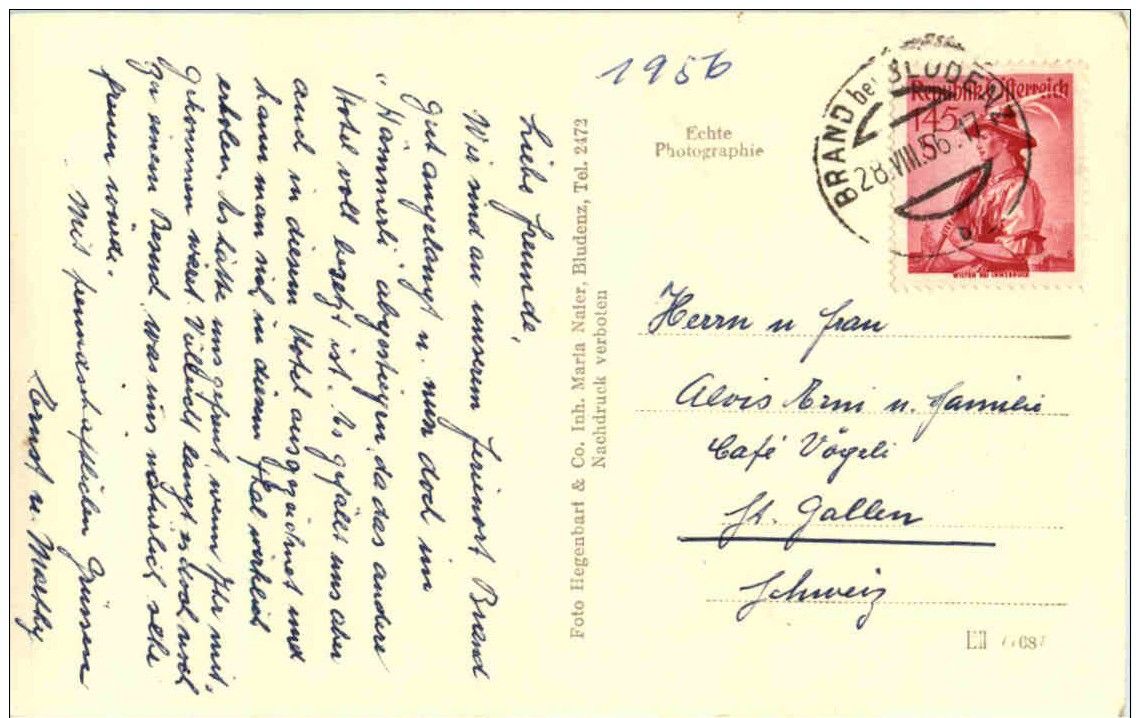 1956
Echte
Photographie
BRAND bei BLUDENZ
28.VIII.56.17
Republik Österreich
145
WILTEN BEI INNSBRUCK
Liebe Freunde,
Wir sind an unserem Ferienort Brand
gut angelangt u. nun doch im
"Hämmerli" abgestiegen, da das andere
Hotel voll besetzt ist. Es gefällt uns aber
auch in diesem Hotel ausgezeichnet und
kann man sich in diesem Thal wirklich
erholen. Es hätte uns gefreut, wenn Ihr mit-
gekommen wäret. Vielleicht langt es doch noch
zu einem Besuch, was uns natürlich sehr
freuen würde.
Mit freundschaftlichen Grüssen
Ernst u. Marthy
Foto Hegenbart & Co. Inh. Maria Naier, Bludenz, Tel. 2472
Nachdruck verboten
Herrn u Frau
Alois Erni u. Familie
Café Vögeli
St. Gallen
Schweiz